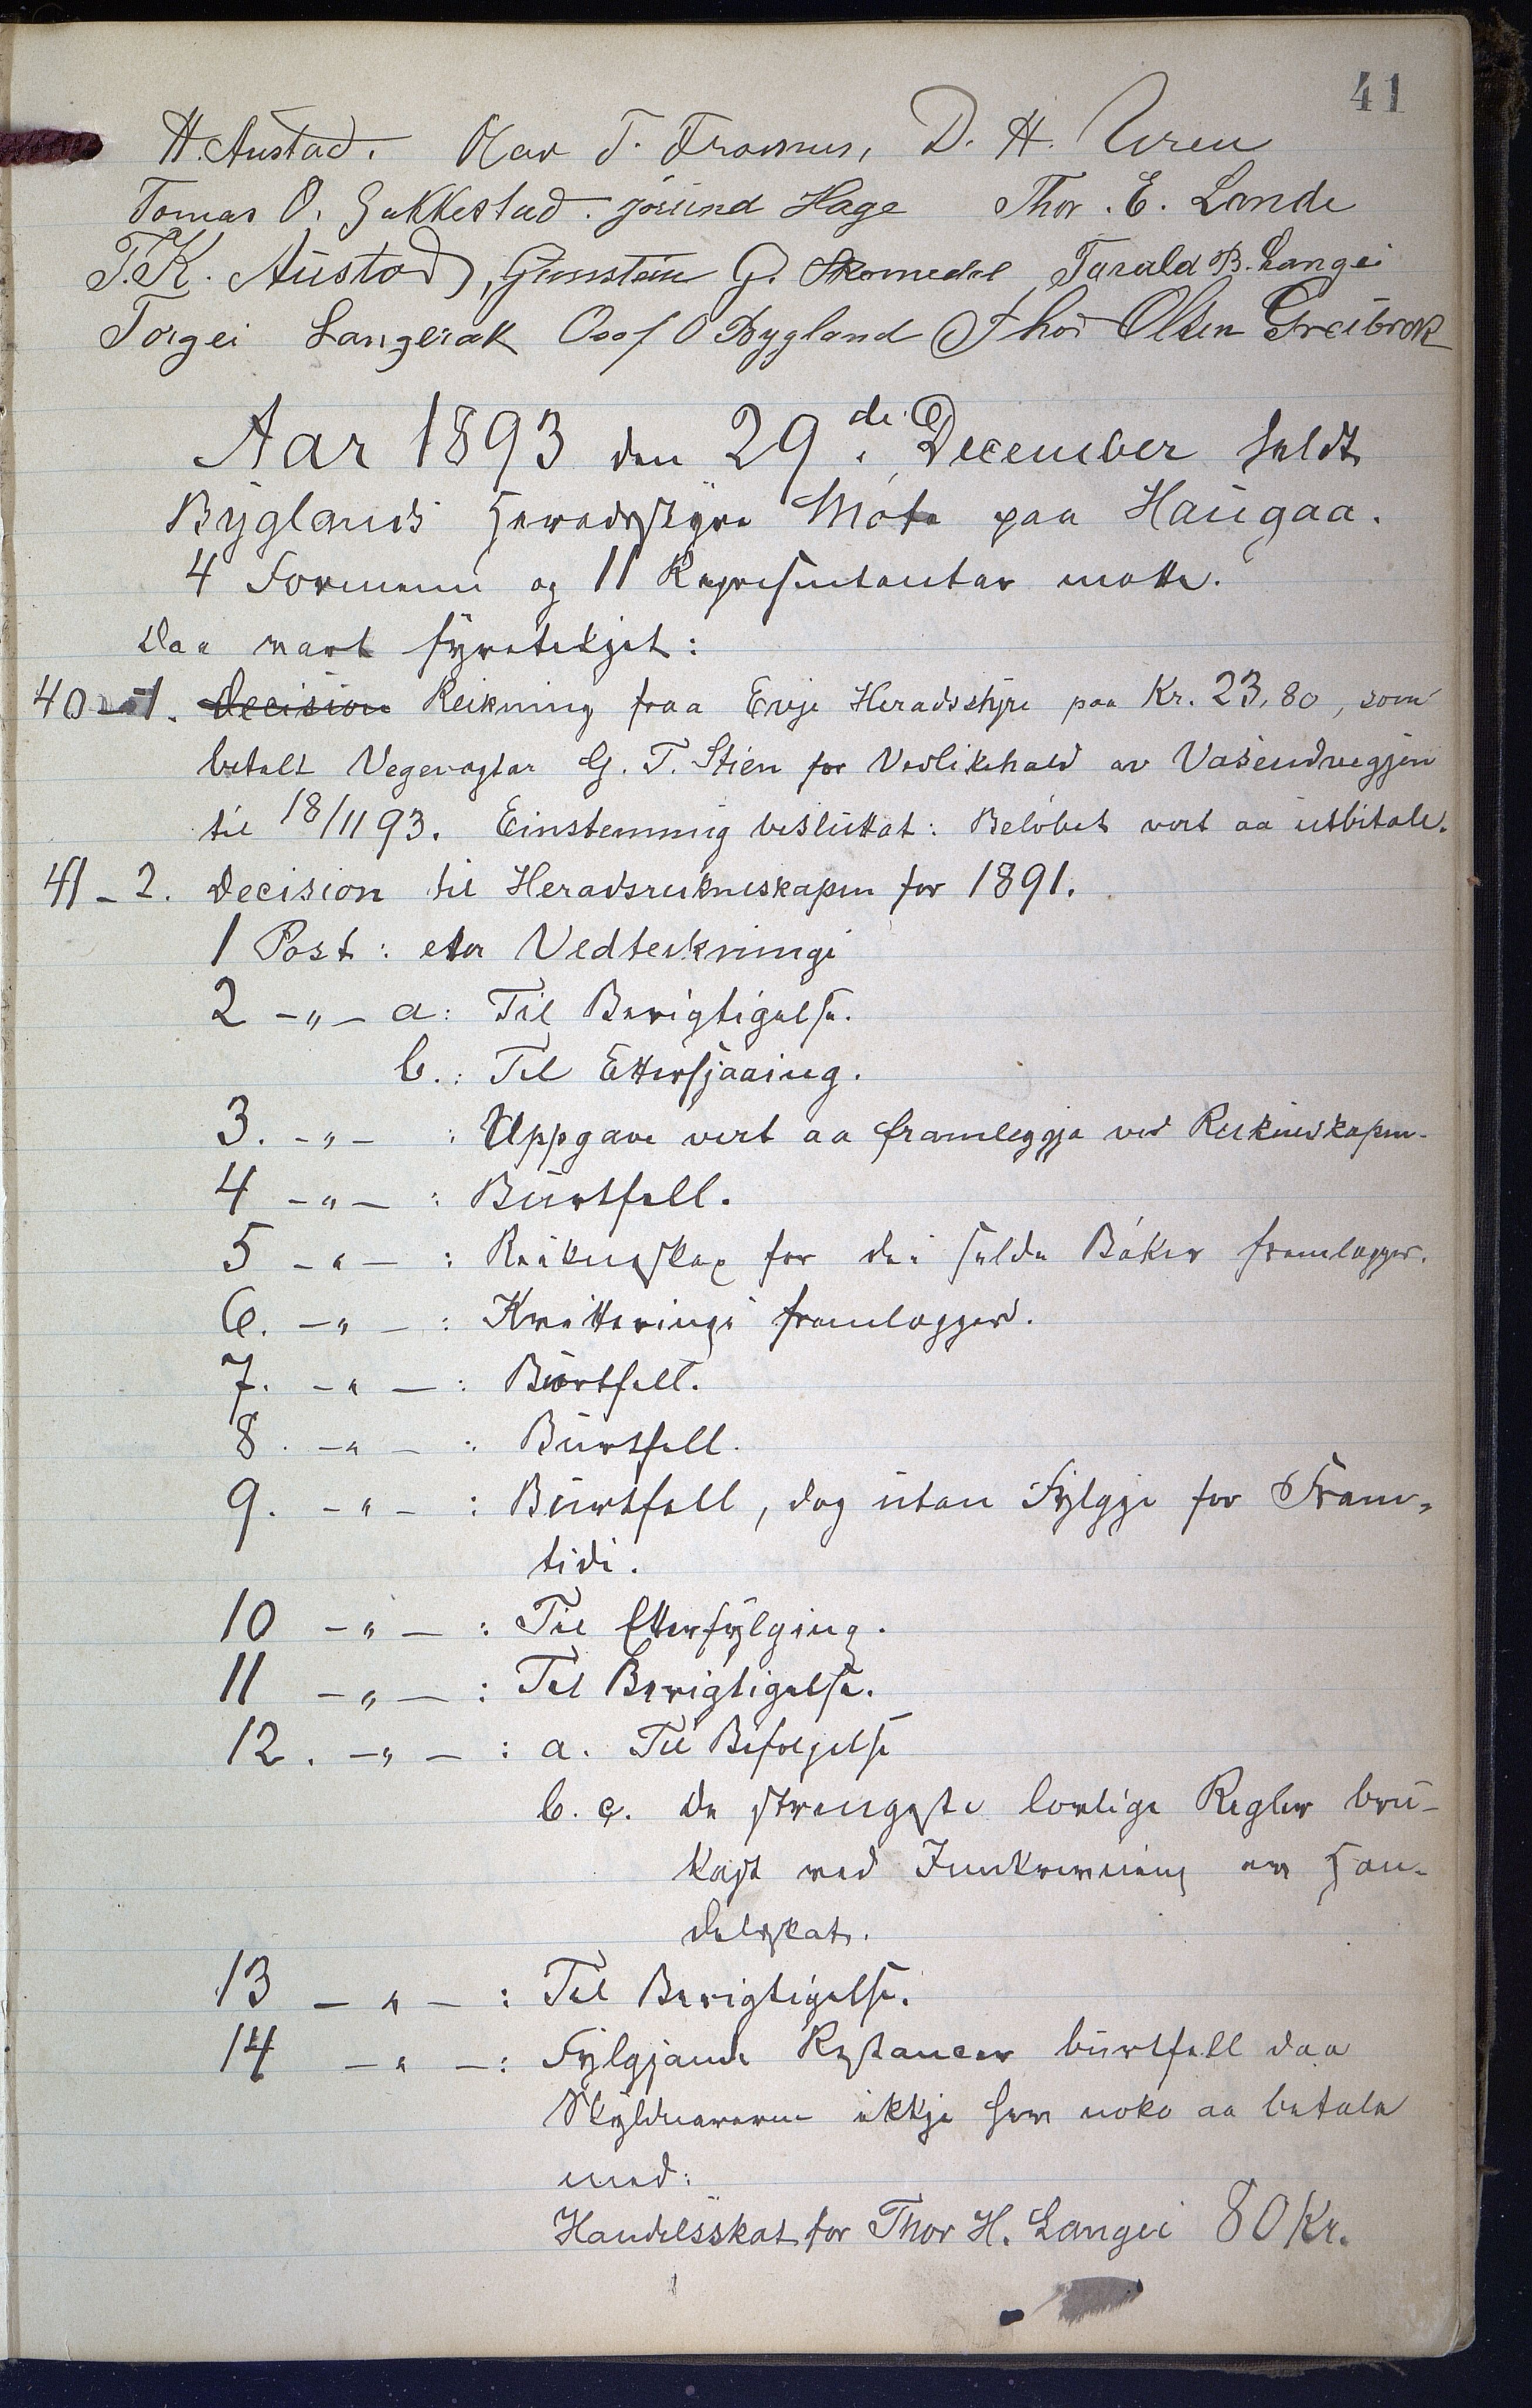 41
H. Austad. Olav T. Framnes, D. H. Uren
Tomas O. Gakkestad. Jörund Hage Thor. E. Lande
T. K. Austad, Gunstein G. Skomedal Tarald B. Langei
Torgei Langerak Osof O Bygland Thor Olsen Greibrok
Aar 1893 den 29de December heldt
Byglands Heradsstyre Möte paa Haugaa.
4 Formenn og 11 Representantar møtte.
Daa vart fyreteket:
40 - 1. Decision Reikning fraa Evje Heradsstyre paa Kr. 23,80, som
betalt Vegevogtar G. T. Stien for Vedlikehald av Vasendvegjen
til 18/11 93. Einstemmig besluttat: Belöbet vert aa utbitale.
41 - 2. Decision til Heradsreikneskapen for 1891.
1 Post: etter Vedteikningi
2 - " - a: Til Berigtigelse.
b.: Til Ettersjaaing.
3. - " - : Uppgave vert aa framleggja ved Reikneskapen.
4 - " - : Burtfell.
5 - " - : Reikneskap for dei selde Böker framlegges.
6. - " - : Kvitteringi framlegges.
7. - " - : Burtfell.
8. - " - : Burtfell.
9. - " - : Burtfell, dog utan Fylgje for Fram-
tidi.
10 - " - : Til Etterfylging.
11 - " - : Til Berigtigelse.
12. - " - : a. Til Befølgelse
b. c. De strengeste lovlige Regler bru-
kast ved Innkrevning av Han-
delsskat.
13 - " - : Til Berigtigelse.
14 - " - : Fylgjande Restancer burtfell daa
Skyldnararne ikkje hev noko aa betala
med:
Handelsskat for Thor H. Langei 80 Kr.